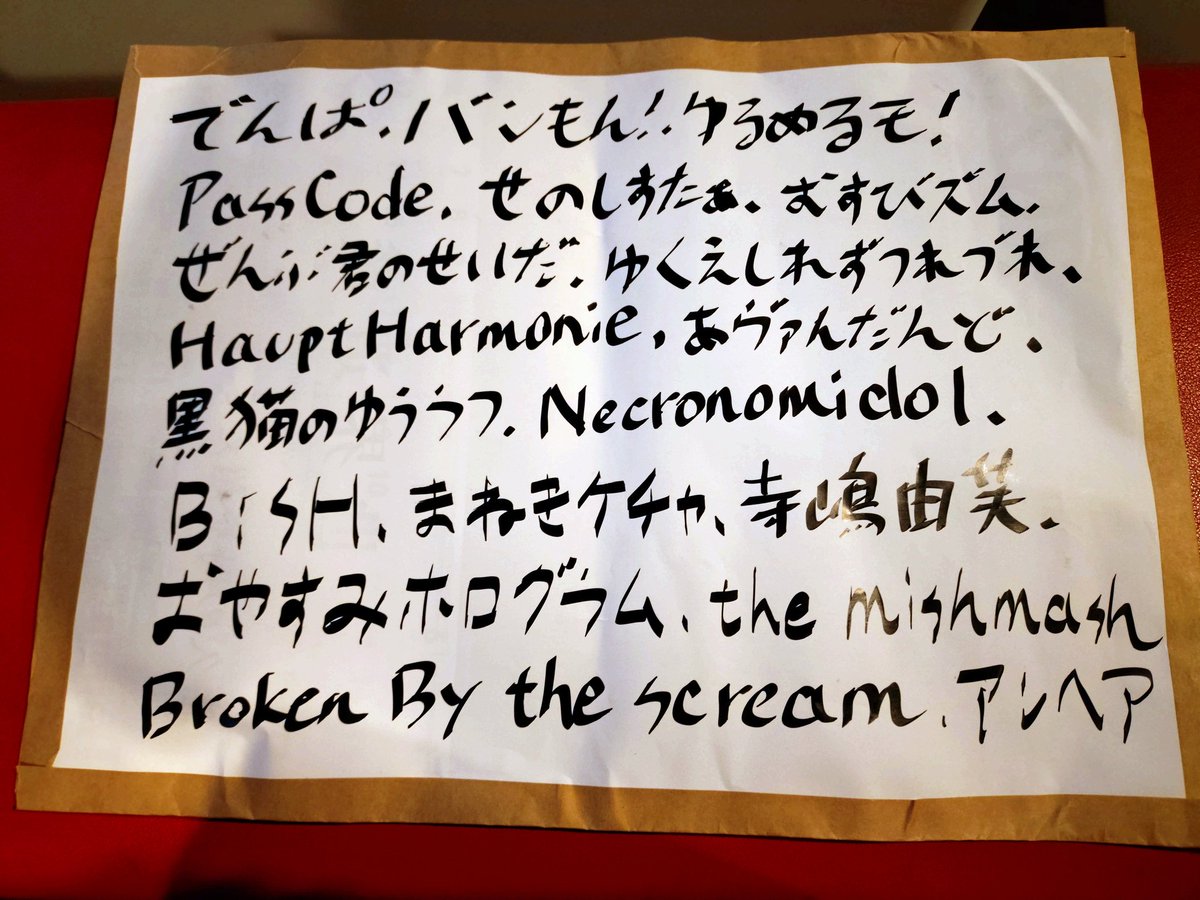 でんぱ、バンもん!、ゆるめるモ!
PassCode、せのしすたぁ、むすびズム、
ぜんぶ君のせいだ、ゆくえしれずつれづれ、
HauptHarmonie、あヴァんだんど、
黒猫のゆううつ、Necronomidol、
BiSH、まねきケチャ、寺嶋由芙、
おやすみホログラム、the mishmash
Broken By the scream、アンヘア